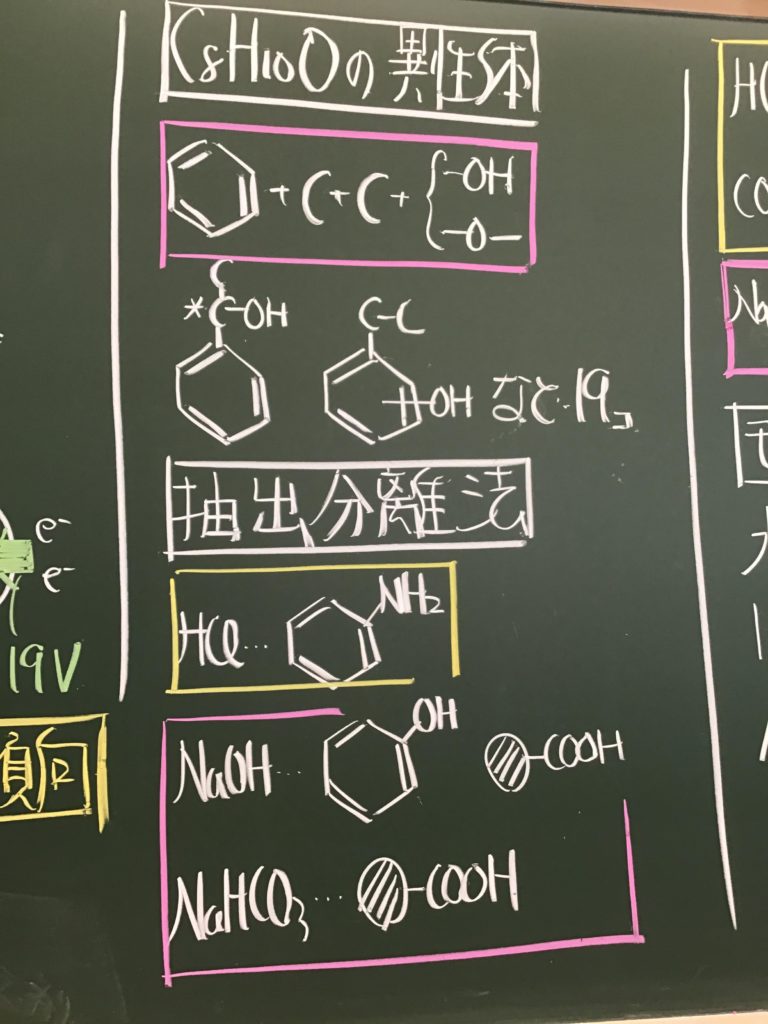 C8H10Oの異性体
+C+C+{-OH
-O-
C
*C-OH
C-C
-OH など19コ
抽出分離法
HCl… NH2
NaOH… OH -COOH
NaHCO3… -COOH
e-
e-
19V
傾向
HC
CO
Na